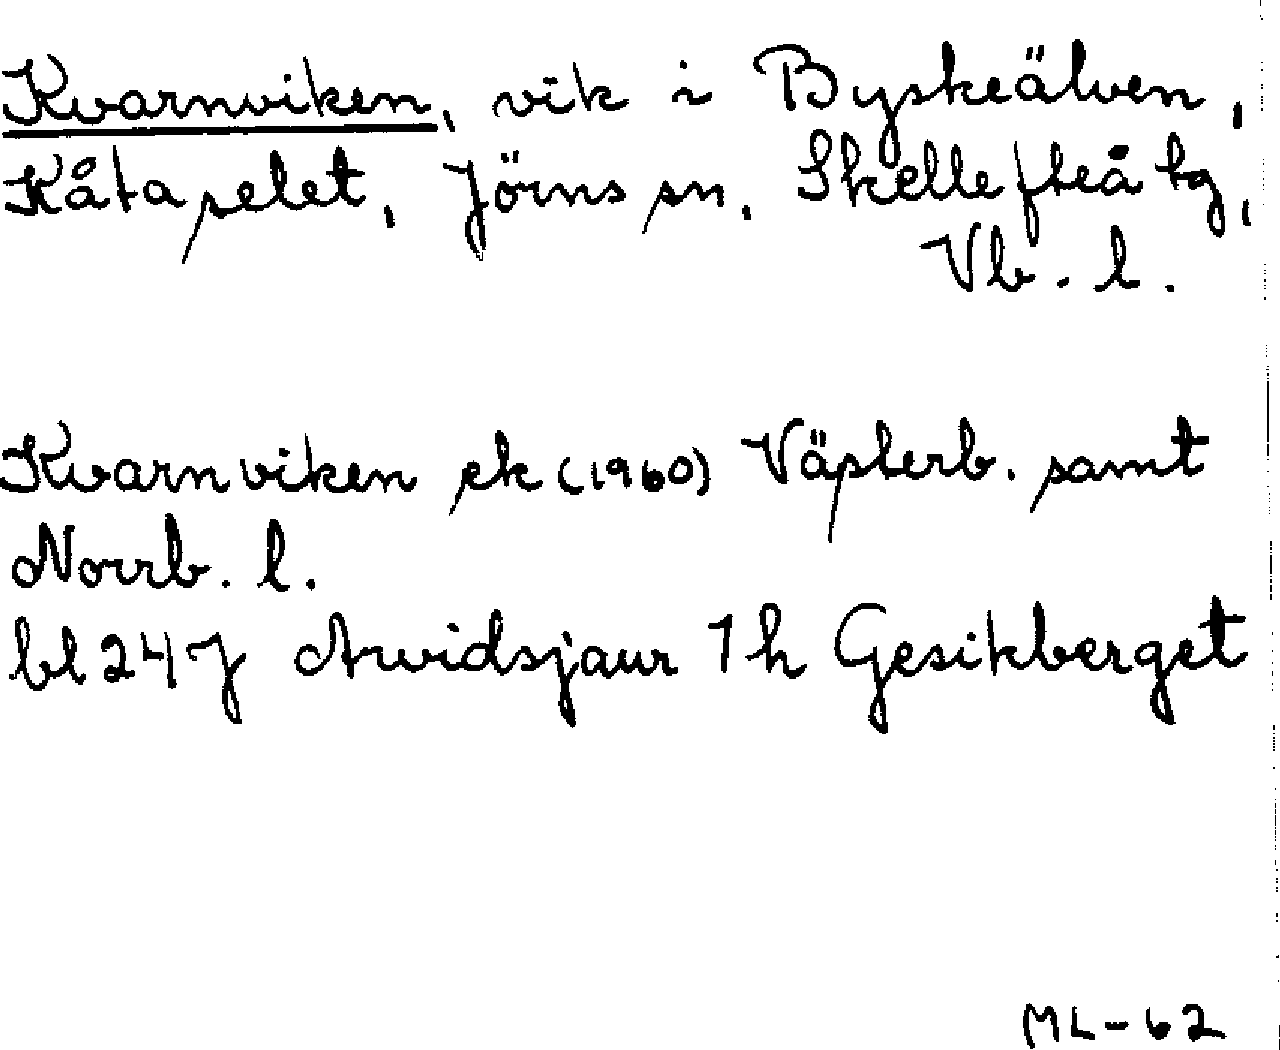 Kvarnviken, vik i Byskeälven,
Kåtaselet, Jörns sn, Skellefteå tg,
Vb. l.
Kvarnviken ek (1960) Västerb. samt
Norrb. l.
bl 24 J Arvidsjaur 1 h Gesikberget
ML-62